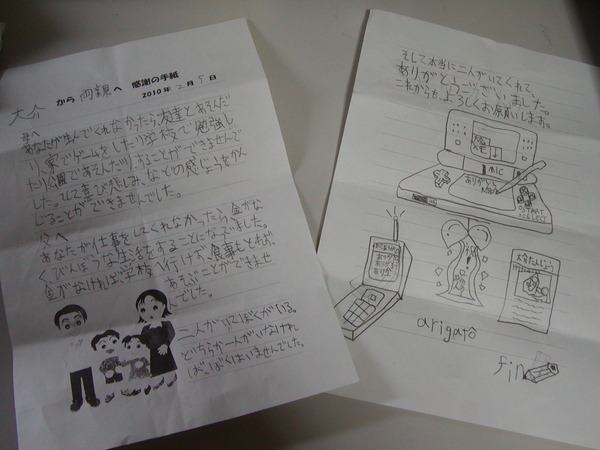 感謝の手紙
大介 から 両親 へ
2010年 2 月 5 日
母へ
あなたが生んでくれなかったら友達とあそんだ
り、家でゲームをしたり学校で勉強し
たり公園であそんだりすることができませんで
した。そして喜び悲しみ、などの感じょうをかん
じることができませんでした。
父へ
あなたが仕事をしてくれなかったら金がな
くびんぼうな生活をすることになってました。
金がなければ学校へ行けず、食事もとれず、
あそぶことができませ
んでした。
二人がいてぼくがいる。
どちらか一人がいなけれ
ば、ぼくはいませんでした。
そして本当に二人がいてくれて、
ありがとうございました。
これからもよろしくお願いします。
MIC
ありがとう
arigatô
fin